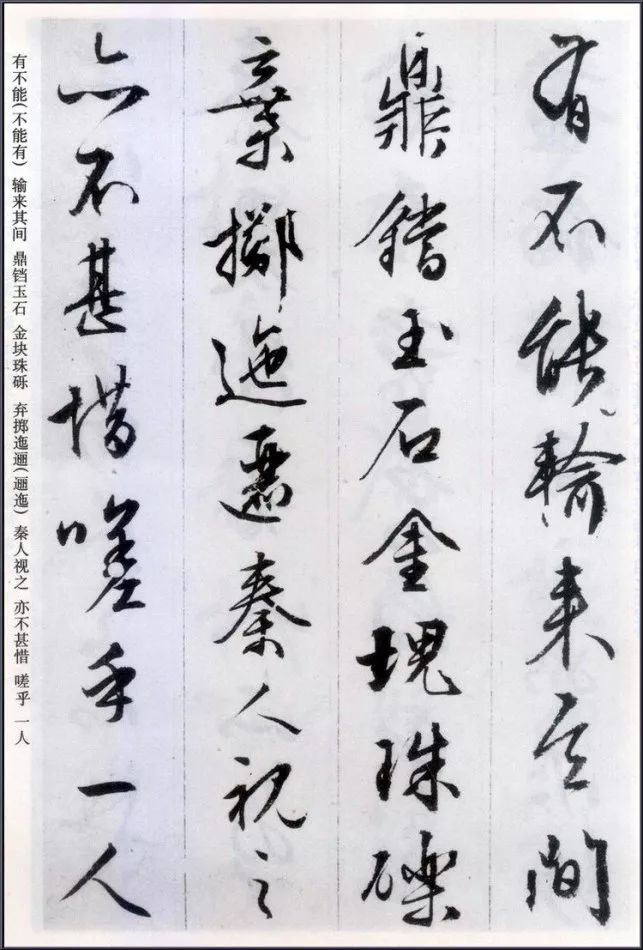 有不能輸来其间
鼎鐺玉石金塊珠礫
棄擲迤邐秦人視之
亦不甚惜嗟乎一人
有不能(不能有) 输来其间 鼎铛玉石 金块珠砾 弃掷迤逦(逦迤) 秦人视之 亦不甚惜 嗟乎 一人